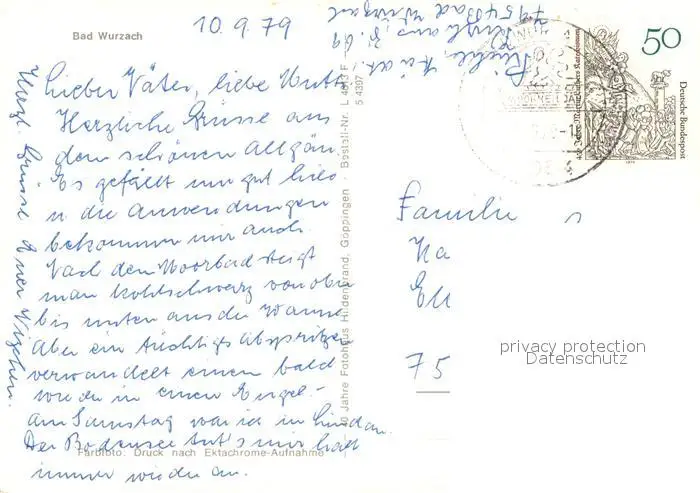 10.9.79
Bad Wurzach
Lieber Väter, liebe Mutti
Herzliche Grüsse aus
dem schönen Allgäu
Es gefällt mir gut hier
u die Anwendungen
bekommen mir auch.
Nach dem Moorbad steigt
man kohlschwarz von oben
bis unten aus der Wanne
Aber ein tüchtigs abspritzen
verwandelt einen bald
wieder in einen Engel.-
Am Samstag war ich in Lindau.
Der Bodensee tut's mir halt
immer wieder an.
Herzl. Grüsse Euer
Farbfoto: Druck nach Ektachrome-Aufnahme
40 Jahre Fotohaus Hildenbrand, Göppingen · Bestell-Nr. L 4813 F
5 4397
7954 Bad Wurzach
50
Deutsche Bundespost
450 Jahre Martin Luthers Katechismus
1979
Familie
Ha
75
privacy protection
Datenschutz